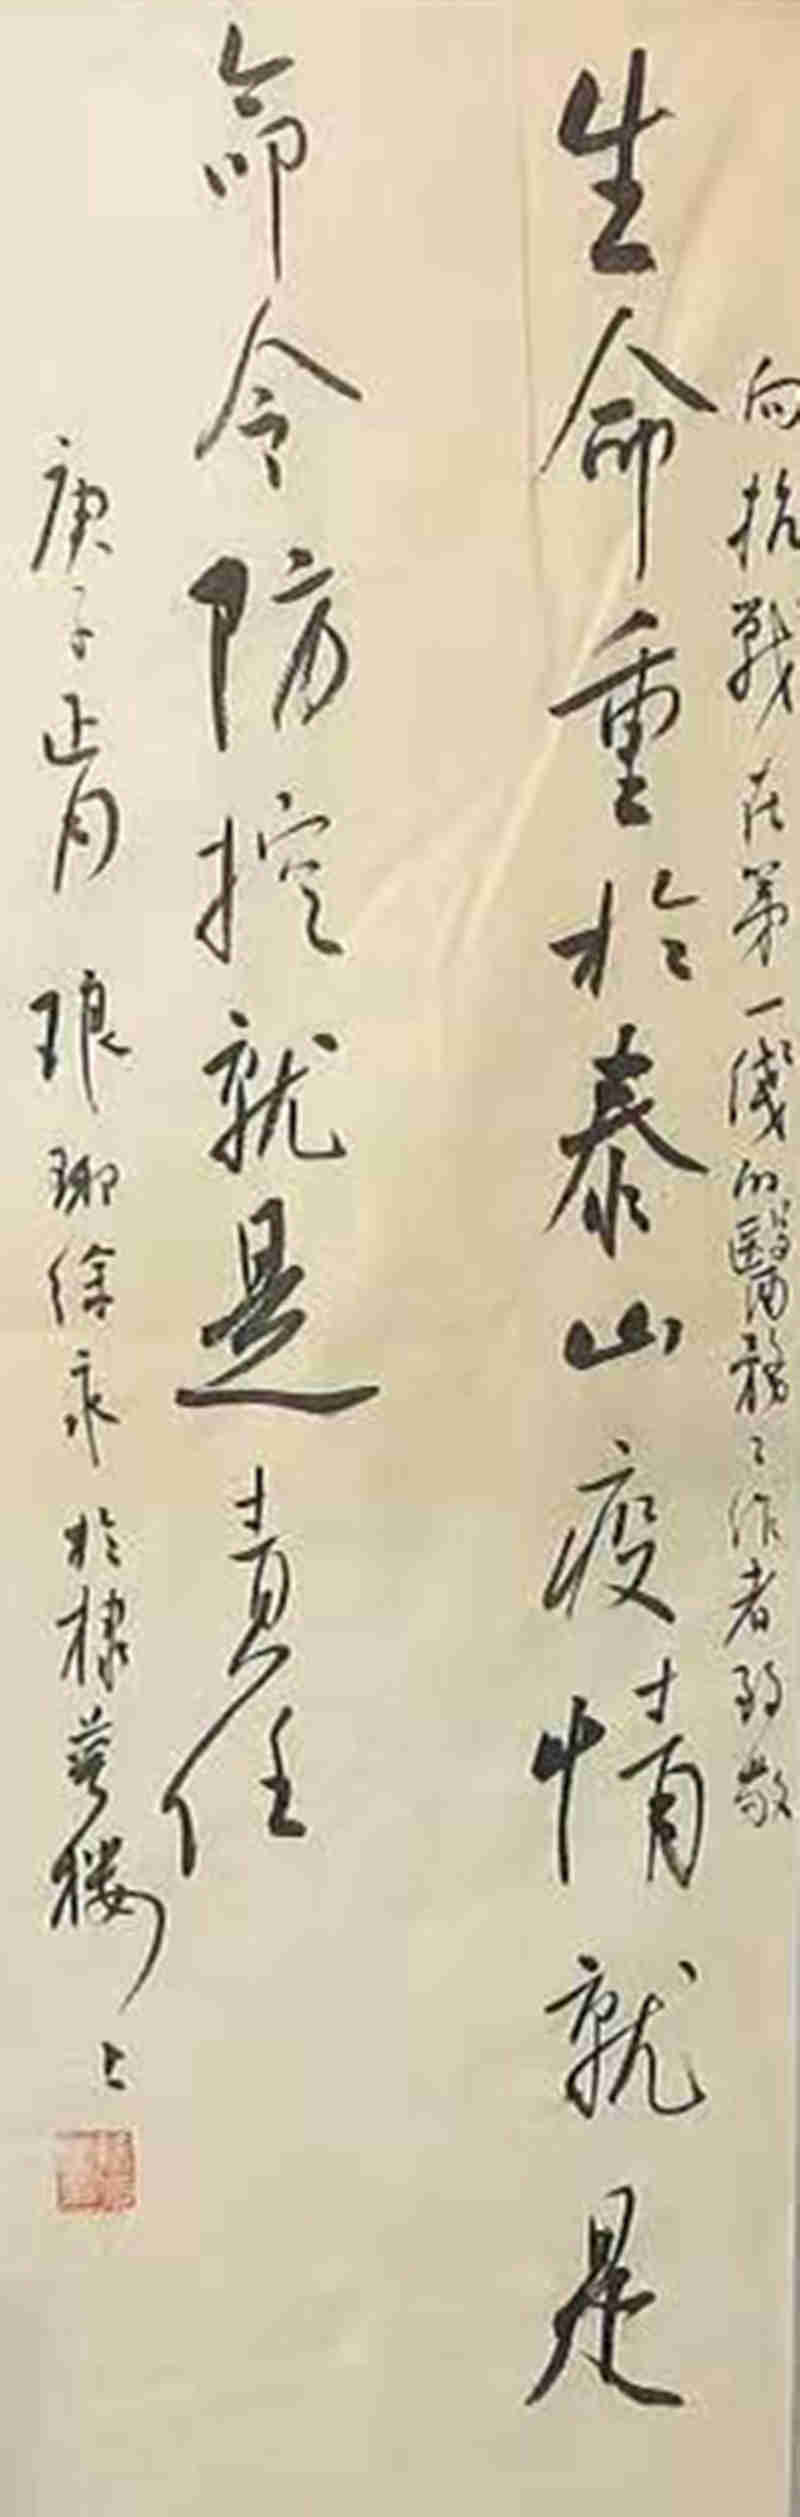 向抗戰在第一線的醫務工作者致敬
生命重於泰山疫情就是
命令防控就是責任
庚子正月琅琊徐永於棣萼樓上